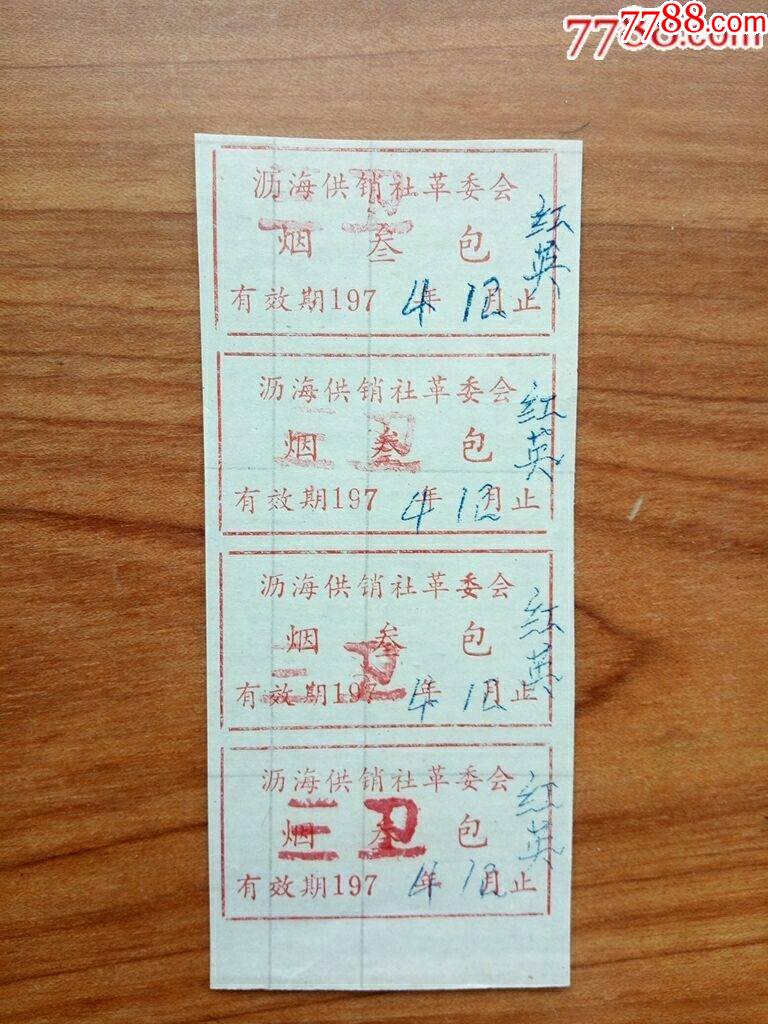 7788.com
7788.com
沥海供销社革委会
三卫
烟 叁 包
红英
有效期197 4 年 12 月止
沥海供销社革委会
三卫
烟 叁 包
红英
有效期197 4 年 12 月止
沥海供销社革委会
烟 叁 包
三卫
红英
有效期197 4 年 12 月止
沥海供销社革委会
三卫
烟 叁 包
红英
有效期197 4 年 12 月止